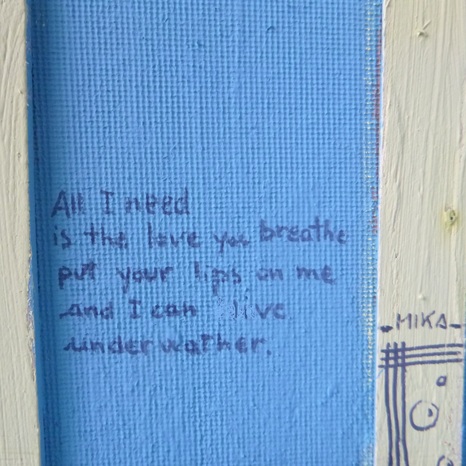 All I need
is the love you breathe
put your lips on me
and I can live
underwather.
-MIKA-